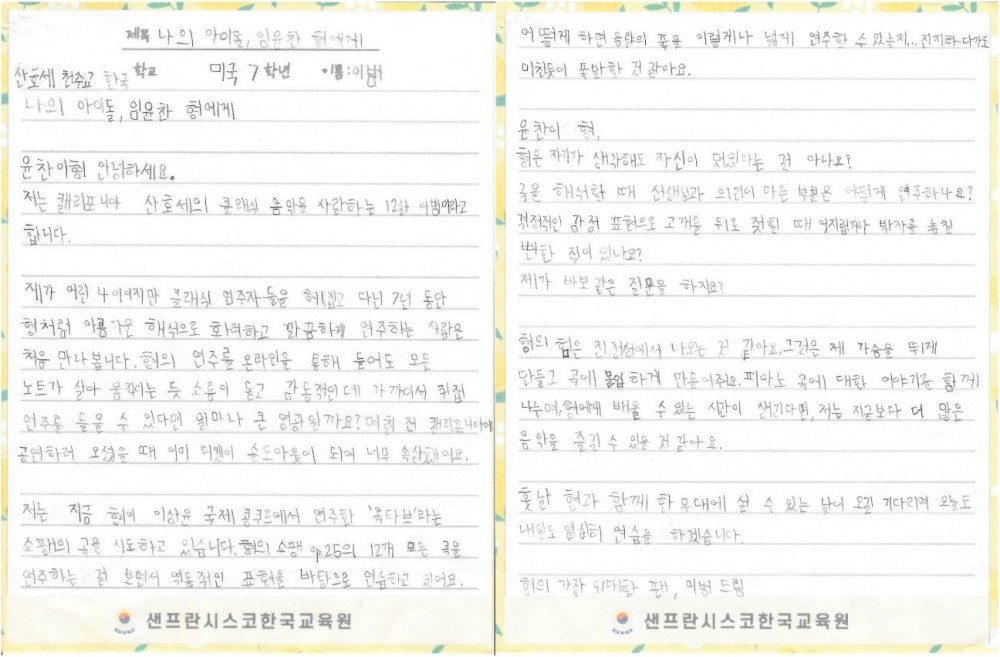 제목 나의 아이돌, 임윤찬 형에게
산호세 천주교 한국 학교 미국 7 학년 이름: 이범
나의 아이돌, 임윤찬 형에게
윤찬이형 안녕하세요.
저는 캘리포니아 산호세의 클래식 음악을 사랑하는 12살 이범이라고
합니다.
제가 어린 나이이지만 클래식 연주자들을 헤집고 다닌 7년 동안
형처럼 아름다운 해석으로 화려하고 깔끔하게 연주하는 사람은
처음 만나봅니다. 형의 연주를 온라인을 통해 들어도 모든
노트가 살아 움직이는 듯 소름이 돋고 감동적인데 가까이서 직접
연주를 들을 수 있다면 얼마나 큰 영광일까요? 며칠 전 캘리포니아에
공연하러 오셨을 때 이미 티켓이 솔드아웃이 되어 너무 속상했어요.
저는 지금 형이 이상윤 국제 콩쿠르에서 연주한 '옥타브'라는
쇼팽의 곡을 시도하고 있습니다. 형의 쇼팽 op.25의 12개 모든 곡을
연주하는 걸 보면서 역동적인 표현을 바탕으로 연습하고 있어요.
샌프란시스코한국교육원
어떻게 하면 음악의 폭을 이렇게나 넓게 연주할 수 있는지... 진지하다가도
미친듯이 폭발한 것 같아요.
윤찬이 형,
형은 자기가 생각해도 자신이 멋있다는 것 아나요?
곡을 해석할 때 선생님과 의견이 다른 부분은 어떻게 연주하나요?
격정적인 감정 표현으로 고개를 뒤로 젖힐 때 어지럽거나 박자를 놓칠
뻔한 적이 있나요?
제가 바보같은 질문을 하지요?
형의 힘은 진정성에서 나오는 것 같아요. 그것은 제 가슴을 뛰게
만들고 곡에 몰입하게 만들어주어요. 피아노 곡에 대한 이야기를 함께
나누며, 형에게 배울 수 있는 시간이 생긴다면, 저는 지금보다 더 많은
음악을 즐길 수 있을 것 같아요.
훗날 형과 함께 한 무대에 설 수 있는 날이 오길 기다리며 오늘도
내일도 열심히 연습을 하겠습니다.
형의 가장 위대한 팬, 이범 드림
샌프란시스코한국교육원